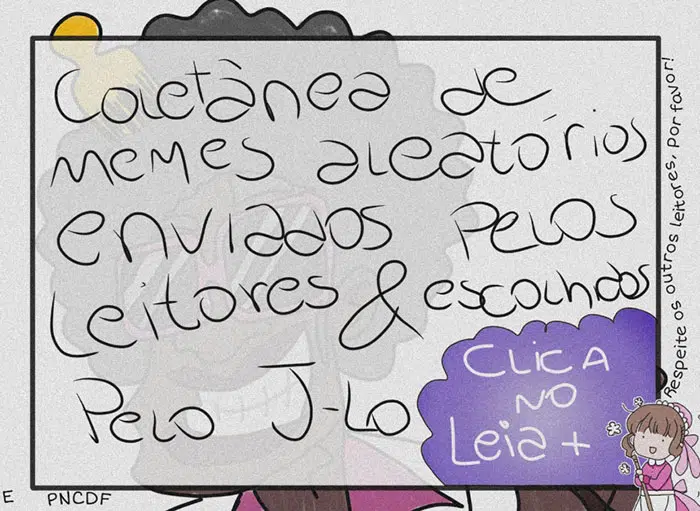 Coletânea de
memes aleatórios
enviados pelos
leitores & escolhidos
pelo J-Lo
CLICA
NO
Leia +
Respeite os outros leitores, por favor!
E PNCDF